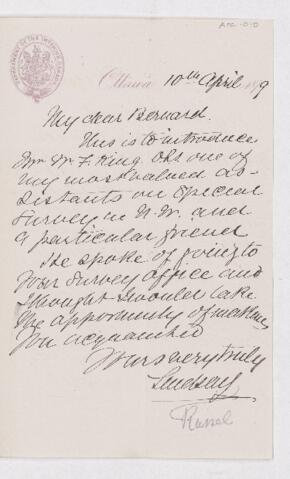 Ottawa 10th April 1879
My dear Bernard.
This is to introduce
Mr W. F. King. one of
my most valued as-
sistants on Special
Survey in N.W. and
a particular friend
He spoke of going to
your Survey office and
I thought I would take
the opportunity of making
you acquainted
Yours very truly
Lindsay
Russel